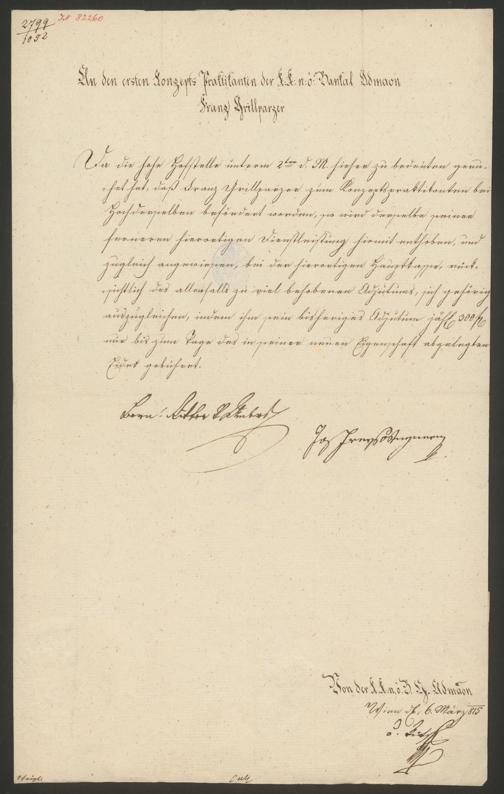 2799
1032
IN 82260
An den ersten Konzepts Praktikanten der k.k. n: ö: Bankal Admaon
Franz Grillparzer
Da die hohe Hofstelle unterm 2ten d. M. hieher zu bedeuten geru-
het hat, daß Franz Grillparzer zum Konzeptspraktikanten bei
Hochderselben befördert worden, so wird derselbe seiner
ferneren hierortigen Dienstleistung hiermit enthoben, und
zugleich angewiesen, bei der hierortigen Hauptkasse, rück-
sichtlich des allenfalls zu viel behobenen Adjutums, sich gehörig
auszugleichen, indem ihm sein bisheriges Adjutum jährl 300 f
nur bis zum Tage des in seiner neuen Eigenschaft abgelegten
Eides gebühret.
Von der k.k. n. ö. Z. G. Admaon
Wien d. 6. März 815